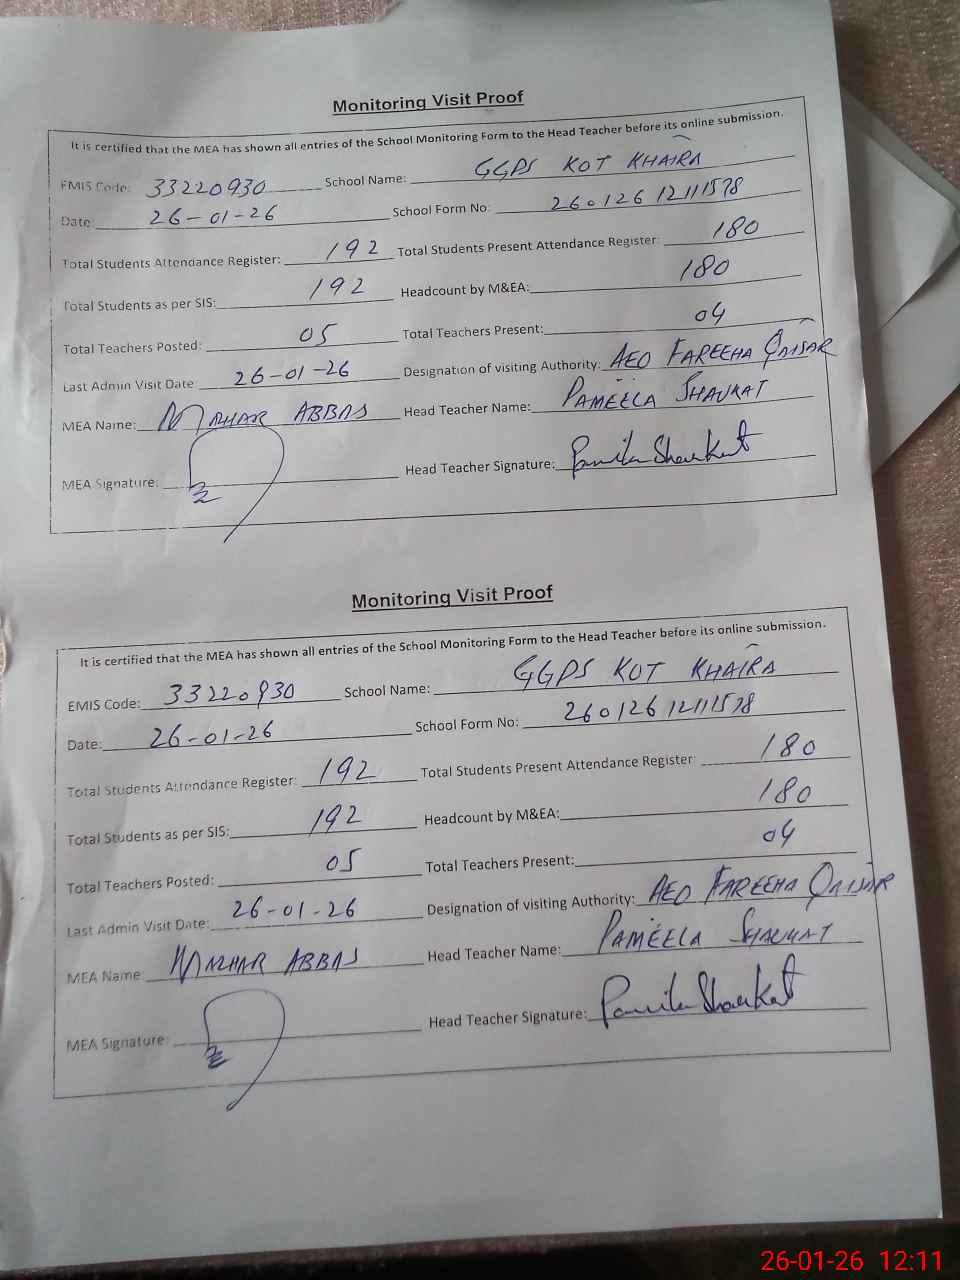 Monitoring Visit Proof
It is certified that the MEA has shown all entries of the School Monitoring Form to the Head Teacher before its online submission.
EMIS Code: 33220930 School Name: GGPS KOT KHAIRA
Date: 26-01-26 School Form No: 260126 12111578
Total Students Attendance Register: 192 Total Students Present Attendance Register: 180
Total Students as per SIS: 192 Headcount by M&EA: 180
Total Teachers Posted: 05 Total Teachers Present: 04
Last Admin Visit Date: 26-01-26 Designation of visiting Authority: AEO FAREEHA QAISAR
MEA Name: MAZHAR ABBAS Head Teacher Name: PAMEELA SHAUKAT
MEA Signature: Head Teacher Signature: Pamila Shaukat
Monitoring Visit Proof
It is certified that the MEA has shown all entries of the School Monitoring Form to the Head Teacher before its online submission.
EMIS Code: 33220930 School Name: GGPS KOT KHAIRA
Date: 26-01-26 School Form No: 260126 12111578
Total Students Attendance Register: 192 Total Students Present Attendance Register: 180
Total Students as per SIS: 192 Headcount by M&EA: 180
Total Teachers Posted: 05 Total Teachers Present: 04
Last Admin Visit Date: 26-01-26 Designation of visiting Authority: AEO FAREEHA QAISAR
MEA Name: MAZHAR ABBAS Head Teacher Name: PAMEELA SHAUKAT
MEA Signature: Head Teacher Signature: Pamila Shaukat
26-01-26 12:11